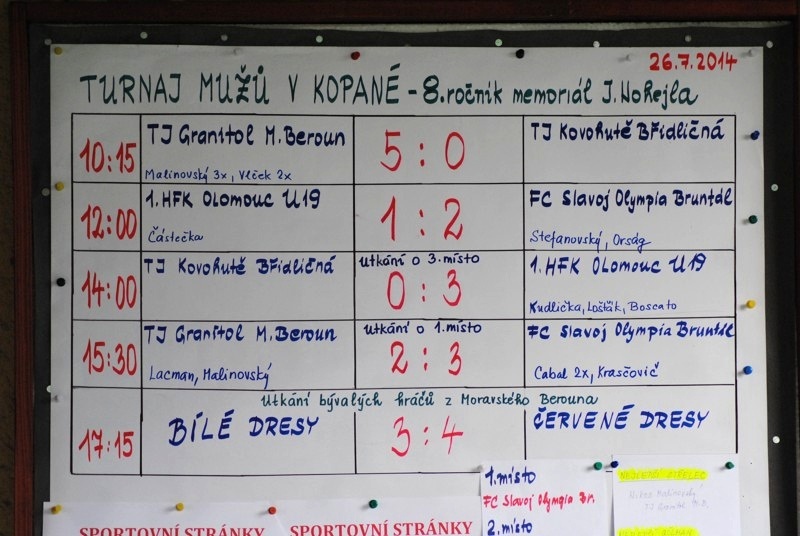 26.7.2014
TURNAJ MUŽŮ V KOPANÉ - 8.ročník memoriál J.Nohejla
10:15 TJ Granitol M.Beroun 5 : 0 TJ Kovohutě Břidličná
Malinovský 3x, Vlček 2x
12:00 1.HFK OLOMOUC U19 1 : 2 FC Slavoj Olympia Bruntál
Částečka Stefanovský, Orság
Utkání o 3.místo
14:00 TJ Kovohutě Břidličná 0 : 3 1.HFK OLOMOUC U19
Kudlička, Lošťák, Boscato
Utkání o 1.místo
15:30 TJ Granitol M.Beroun 2 : 3 FC Slavoj Olympia Bruntál
Lacman, Malinovský Cabal 2x, Krasčovič
Utkání bývalých hráčů z Moravského Berouna
17:15 BÍLÉ DRESY 3 : 4 ČERVENÉ DRESY
1.místo
FC Slavoj Olympia Br.
2.místo
SPORTOVNÍ STRÁNKY SPORTOVNÍ STRÁNKY